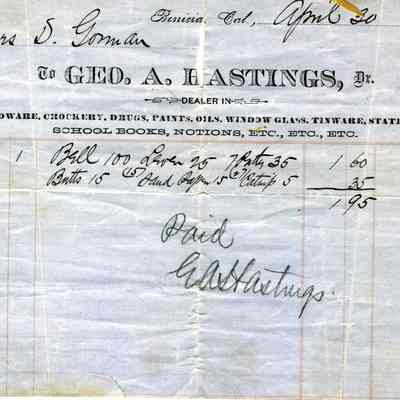 Benicia, Cal., April 30
rs D. Gorman
To GEO. A. HASTINGS, Dr.
DEALER IN
DWARE, CROCKERY, DRUGS, PAINTS, OILS, WINDOW GLASS, TINWARE, STATI
SCHOOL BOOKS, NOTIONS, ETC., ETC., ETC.
1 Bell 100 Lever 25 Putty 35 1 60
Butts 15 Sand Paper 15 Catnip 5 35
1.95
Paid
G A Hastings.